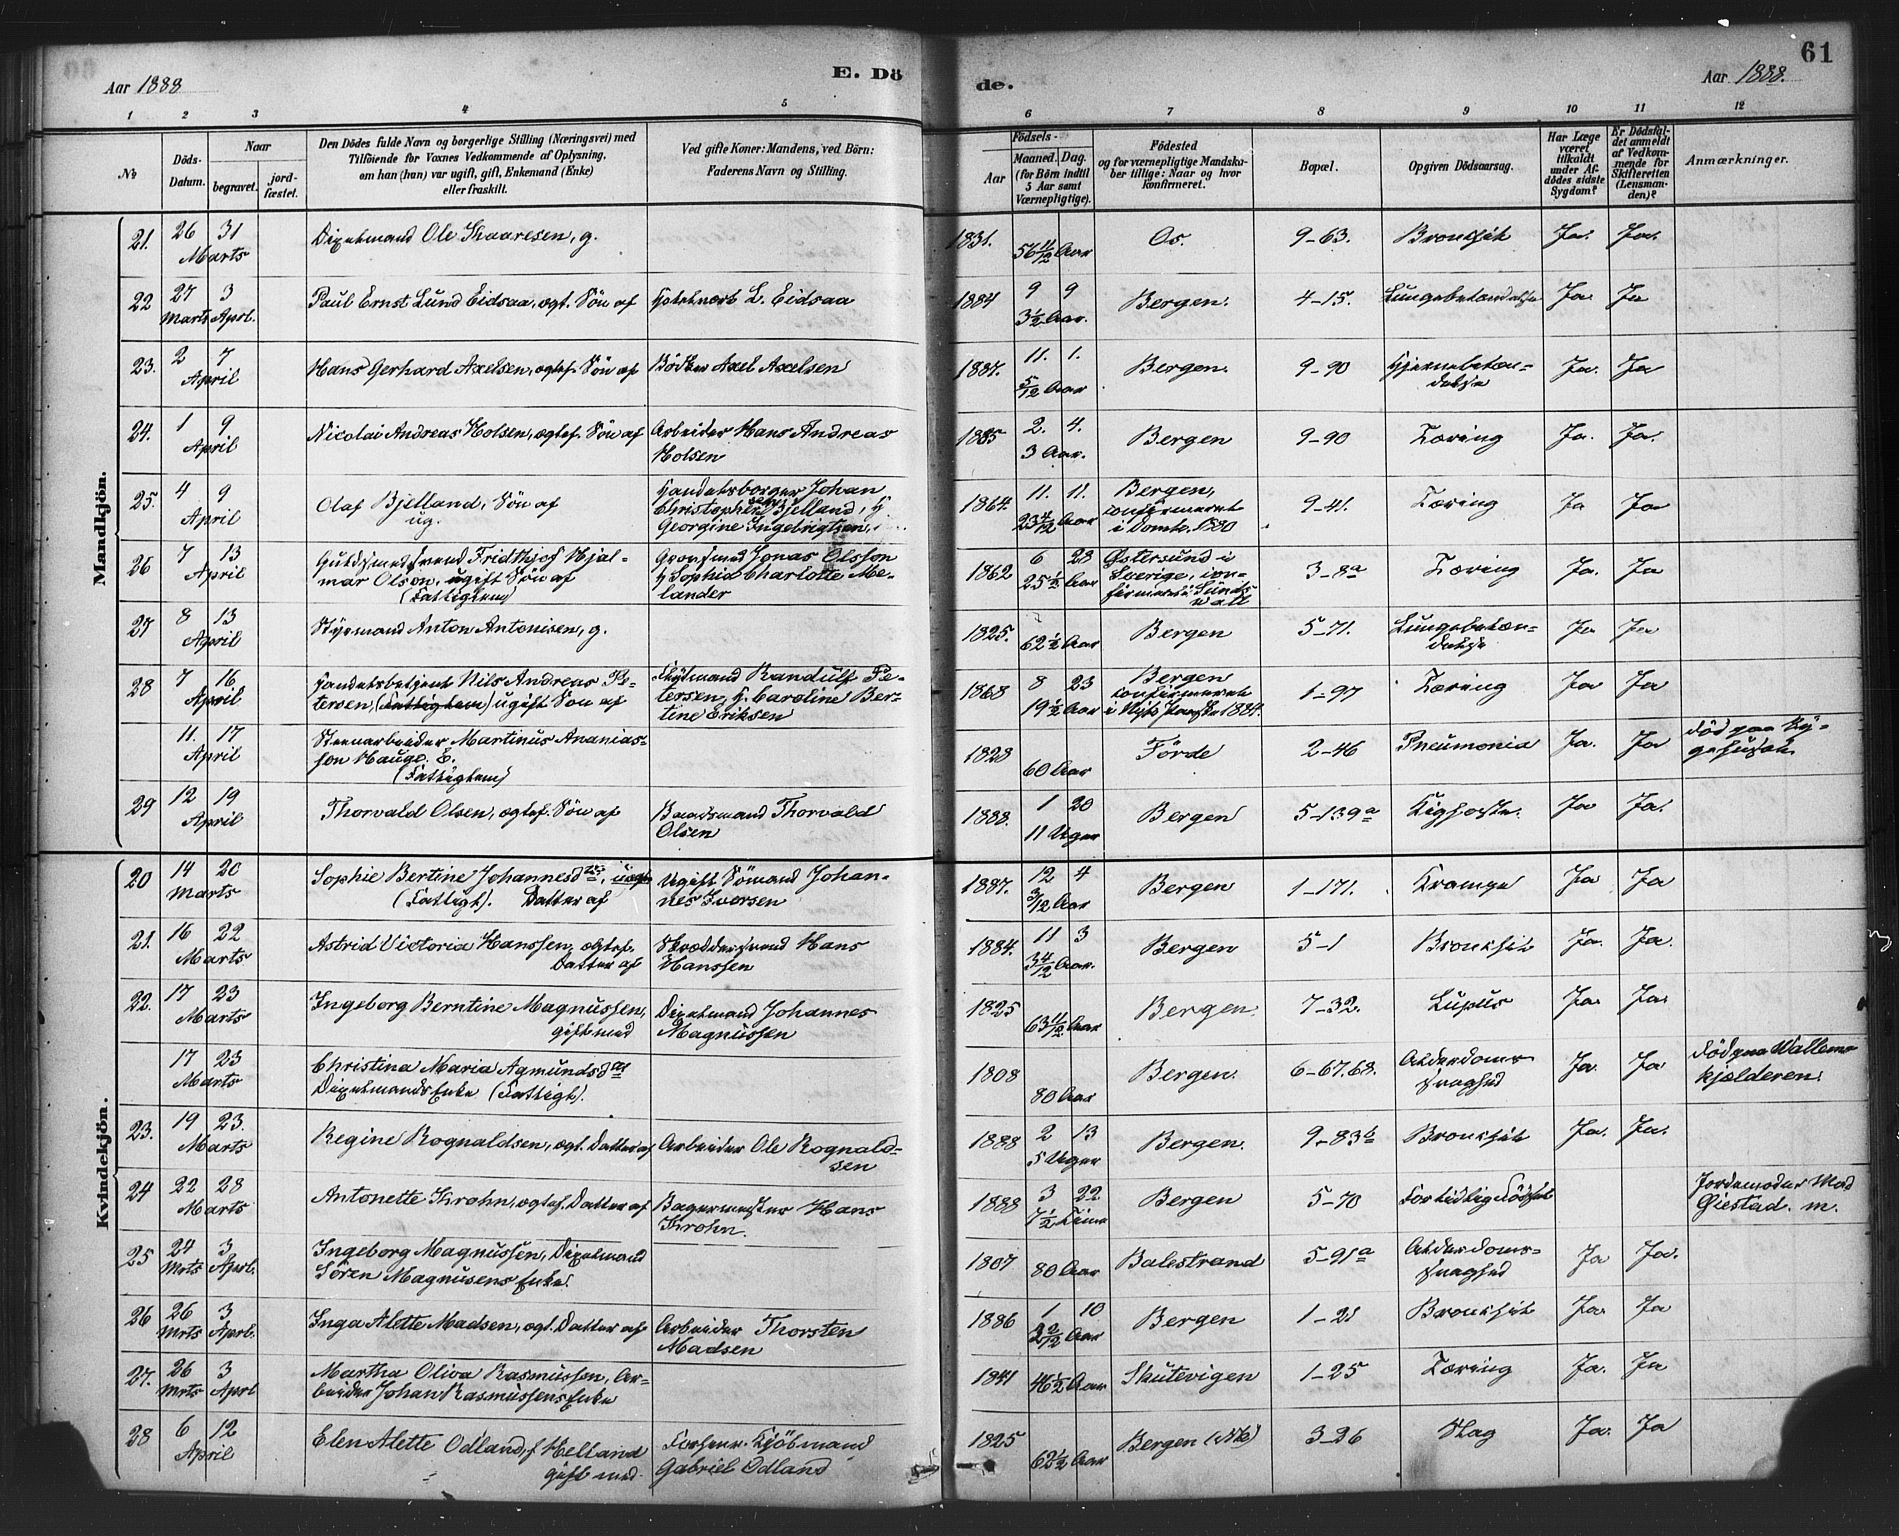 61
Aar 1888
E. Dö
de.
Aar 1888.
1 2 3 4 5 6 7 8 9 10 11 12
No
Döds-Datum.
Naar
begravet.
jord-fæstet.
Den Dödes fulde Navn og borgerlige Stilling (Næringsvei) med
Tilföiende for Voxnes Vedkommende af Oplysning,
om han (hun) var ugift, gift, Enkemand (Enke)
eller fraskilt.
Ved gifte Koner: Mandens, ved Börn:
Faderens Navn og Stilling.
Födsels-
Aar
Maaned. Dag.
(for Börn indtil
5 Aar samt
Værnepligtige).
Födested
og for værnepligtige Mandska-
ber tillige: Naar og hvor
konfirmeret.
Bopæl.
Opgiven Dödsaarsag.
Har Læge
været
tilkaldt
under Af-
dödes sidste
Sygdom?
Er Dödsfal-
det anmeldt
af Vedkom-
mende for
Skifteretten
(Lensman-
den)?
Anmærkninger.
Mandkjön.
21. 26 31 Marts Ole Kaaresen, g. 1831. 56 11/12 Aar Os. 9-63. Bronkhit Ja. Ja.
22 27 Marts 3 April. Paul Ernst Lund Eidsaa, ægt. Sön af L. Eidsaa 1884 9 9 3½ Aar. Bergen. 4-15. Lungebetændelse Ja Ja
23. 2 7 April Hans Gerhard Axelsen, ægtef. Sön af Bödker Axel Axelsen 1887. 11. 1. 5/12 Aar Bergen. 9-90 Hjernebetæn-
delse Ja. Ja
24. 1 9 April Nicolai Andreas Holsen, ægtef. Sön af Arbeider Hans Andreas
Holsen 1885 2. 4. 3 Aar. Bergen 9-90 Tæring Ja. Ja.
25. 4 9 April Olaf Bjelland, Sön af
ug. Handelsborger Johan
Bjelland, H
Georgine Ingebrigtsen 1864. 11. 11. 23 4/12 Aar Bergen,
confirmeret
i Domk. 1880 9-41. Tæring Ja Ja
26 7 13 April Guldsmedsvend Fridthjof Hjal-
mar Olson, ugift Sön af
(Fattiglem) Jonas Olsson
H Sophia Charlotte Me-
lander 1862 6 28 25½ Aar Østersund i
Sverige, con-
firmeret i Sunds-
wall 3-8a Tæring Ja. Ja
27 8 13 April Styrmand Anton Antonisen, g. 1825. 62½ Aar Bergen 5-71. Lungebetæn-
delse Ja Ja
28 7 16 April Handelsbetjent Nils Andreas Pe-
tersen, (Fattiglem) ugift Sön af Randulf Pe-
tersen, H. Caroline Ber-
tine Eriksen 1868 8 23 19½ Aar Bergen
confirmeret
i 1884. 1-97 Tæring Ja Ja
11. 17 April Stenarbeider Martinus Ananias-
son Hauge. E.
(Fattiglem) 1828 60 Aar Förde 2-46 Pneumonia Ja. Ja död paa Sy-
gehuset.
29 12 19 April Thorvald Olsen, ægtef. Sön af Baadsmand Thorvald
Olsen 1888. 1 20 11 Uger Bergen 5-139a Kighoste. Ja Ja.
Kvindekjön.
20 14 20 Marts Sophie Bertine Johannesdtr,
(Fattigt). Datter af Ugift Sömand Johan-
nes Iversen 1887. 12 4 3/12 Aar Bergen 1-171. Krampe Ja Ja
21. 16 22 Marts Astrid Victoria Hanssen, ægtef.
Datter af Skræddersvend Hans
Hanssen 1884. 11 3 3 4/12 Aar. Bergen 5-1 Bronkhit Ja. Ja.
22. 17 23 Marts Ingeborg Berntine Magnussen,
gift med Johannes
Magnussen 1825 63 11/12 Aar Bergen 7-32. Lupus Ja. Ja.
17 23 Marts Christina Maria Agmundsdtr
Enke (Fattigt). 1808 80 Aar Bergen. 6-67.68. Alderdoms-
svaghed Ja. Ja död paa Wallem-
kjælderen.
23. 19 23. Marts Regine Rognaldsen, ægt. Datter af Arbeider Ole Rognald-
sen 1888 2 13 5 Uger Bergen. 9-83b Bronkhit Ja. Ja.
24 22 28 Marts Antonette Krohn, ægtef. Datter af Bagermester Hans
Krohn. 1888 3 22 7½ Time Bergen 5-70 For tidlig Födsel Jordemoder Mad
Giestad. m.
25 24 Mrts 3 Aprl. Ingeborg Magnussen,
Sören Magnusens Enke. 1807 80 Aar Balestrand 5-91a Alderdoms-
svaghed Ja Ja.
26 26 Mrts 3 Aprl. Inga Alette Madsen, ægt. Datter af Arbeider Thorsten
Madsen 1886 1 10 2 2/12 Aar Bergen 1-21 Bronkhit Ja. Ja
27. 26 Mrts 3 Aprl Martha Oliva Rasmussen, Ar-
beider Johan Rasmussens Enke 1841 46½ Aar Skutevigen 1-25 Tæring Ja. Ja
28 6 12 April Elen Alette Odland, f Helland
gift med Forhenv. Kjöbmand
Gabriel Odland 1825 62½ Aar Bergen (Nk) 3-26 Slag Ja. Ja